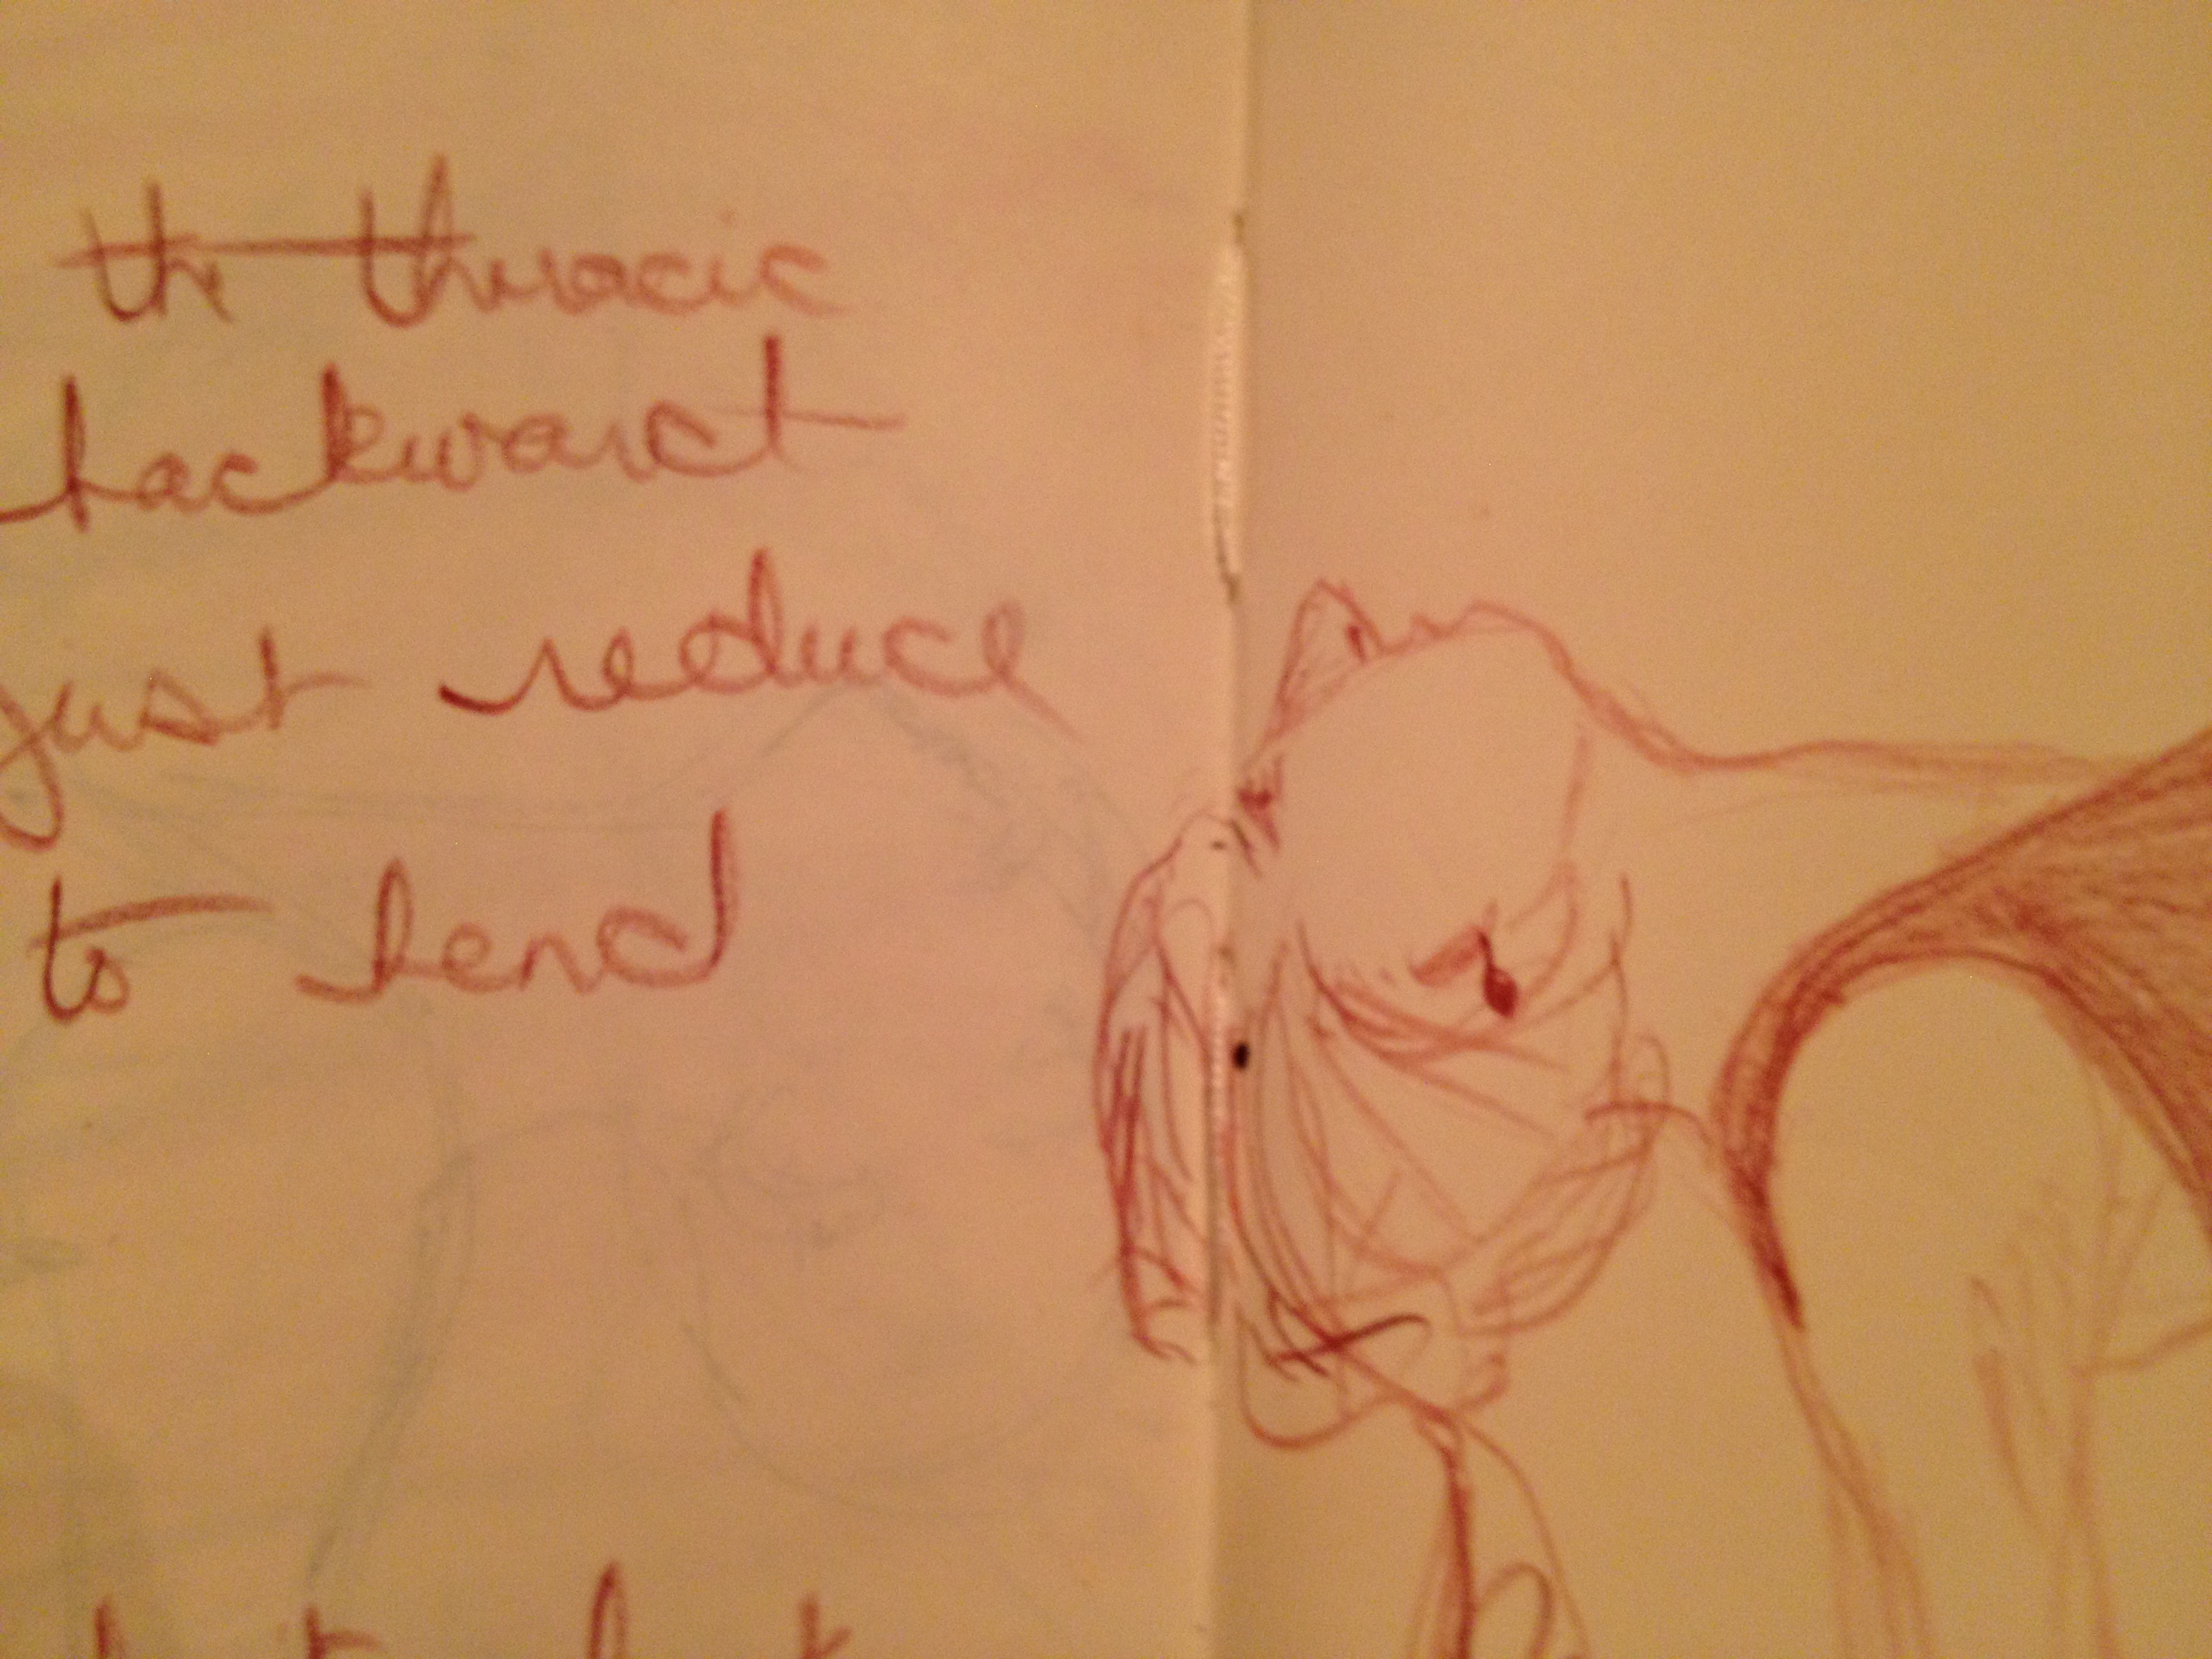 the thoracic
backward
just reduce
to bend